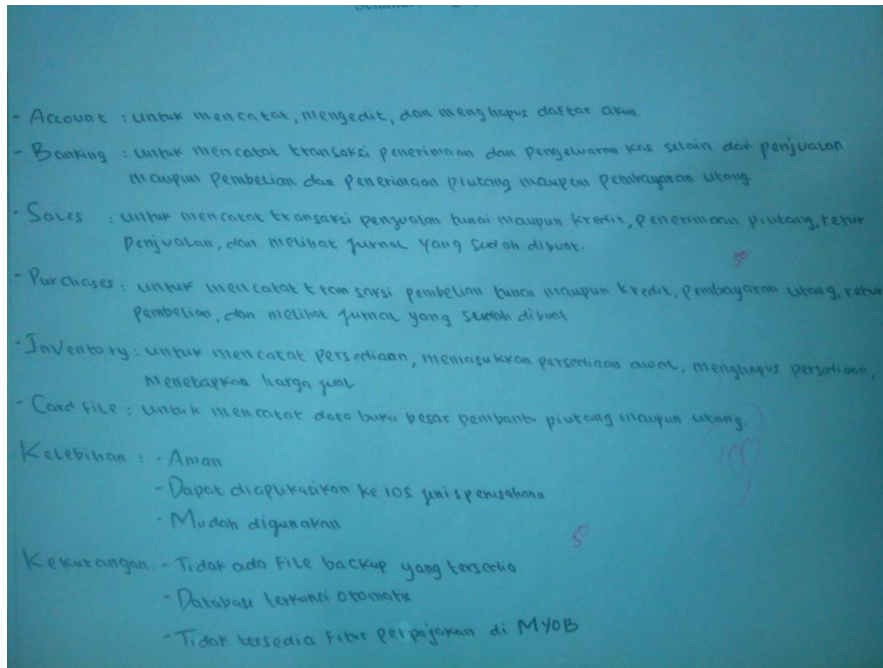 - Account : untuk mencatat, mengedit, dan menghapus daftar akun.
- Banking : untuk mencatat transaksi penerimaan dan pengeluaran kas selain dari penjualan
maupun pembelian dan penerimaan piutang maupun pembayaran utang
- Sales : untuk mencatat transaksi penjualan tunai maupun kredit, penerimaan piutang, retur
penjualan, dan melihat jurnal yang sudah dibuat.
50
- Purchases : untuk mencatat transaksi pembelian tunai maupun kredit, pembayaran utang, retur
pembelian, dan melihat jurnal yang sudah dibuat
- Inventory : untuk mencatat persediaan, memasukkan persediaan awal, menghapus persediaan,
menetapkan harga jual
- Card file : untuk mencatat data buku besar pembantu piutang maupun utang.
Kelebihan : - Aman
100
- Dapat diaplikasikan ke 105 jenis perusahaan
- Mudah digunakan
50
Kekurangan : - Tidak ada File backup yang tersedia
- Database terkunci otomatis
- Tidak tersedia fitur perpajakan di MYOB